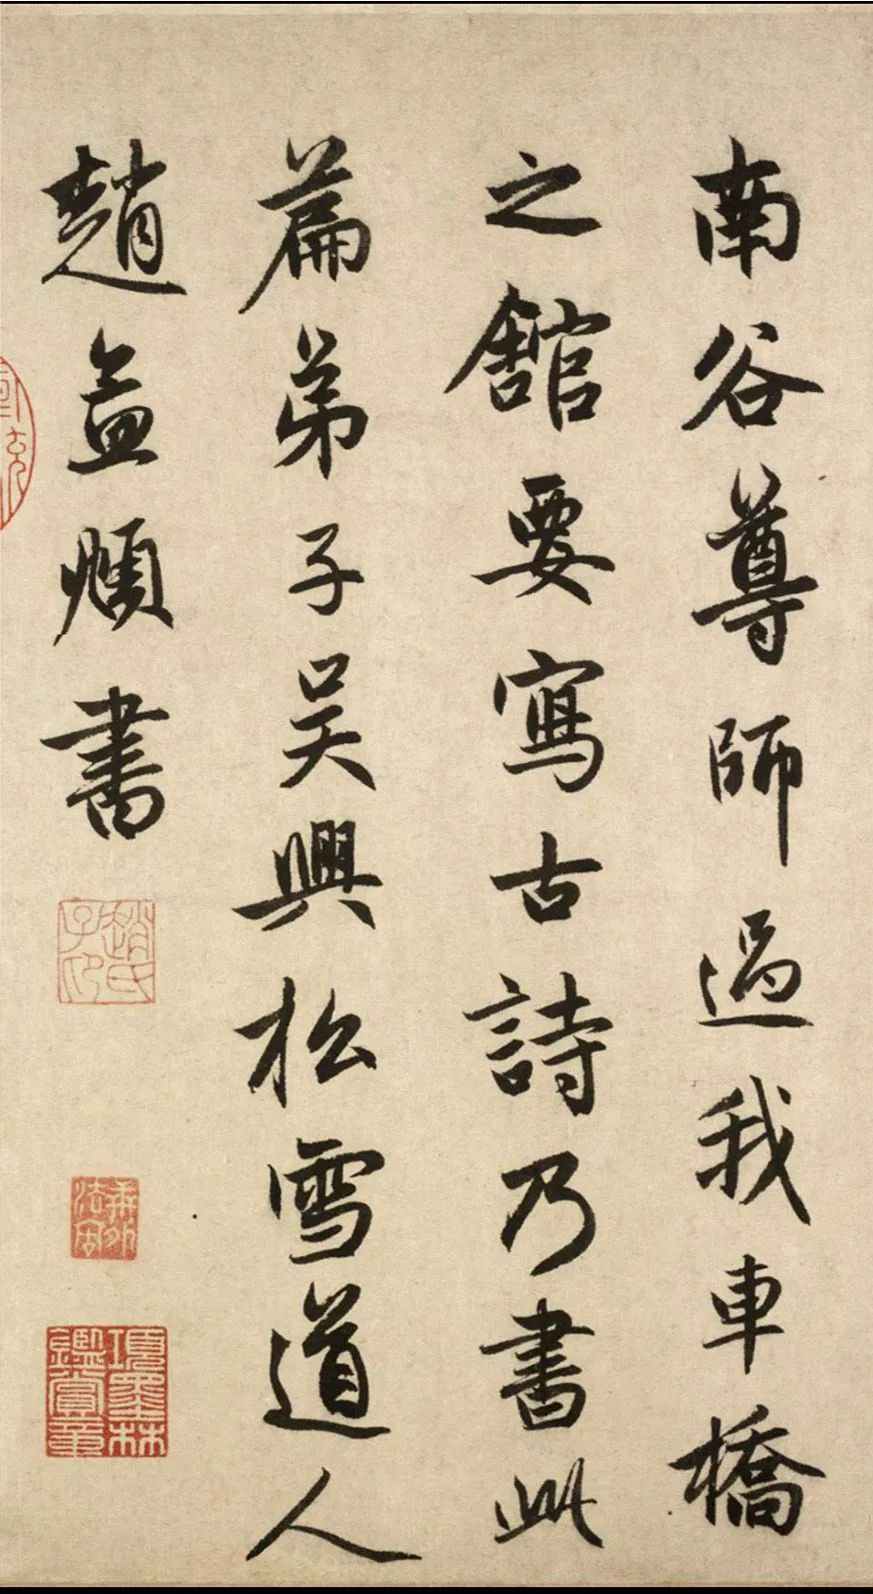 南谷尊師過我車橋
之館要寫古詩乃書此
篇弟子吳興松雪道人
趙孟頫書
趙氏子印
項墨林鑑賞章